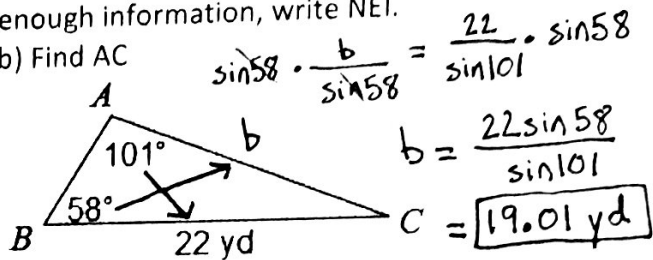 enough information, write NEI.
b) Find AC
sin58 · b/sin58 = 22/sin101 · sin58
A
101°
b
b = 22sin58/sin101
58°
B
22 yd
C
= 19.01 yd